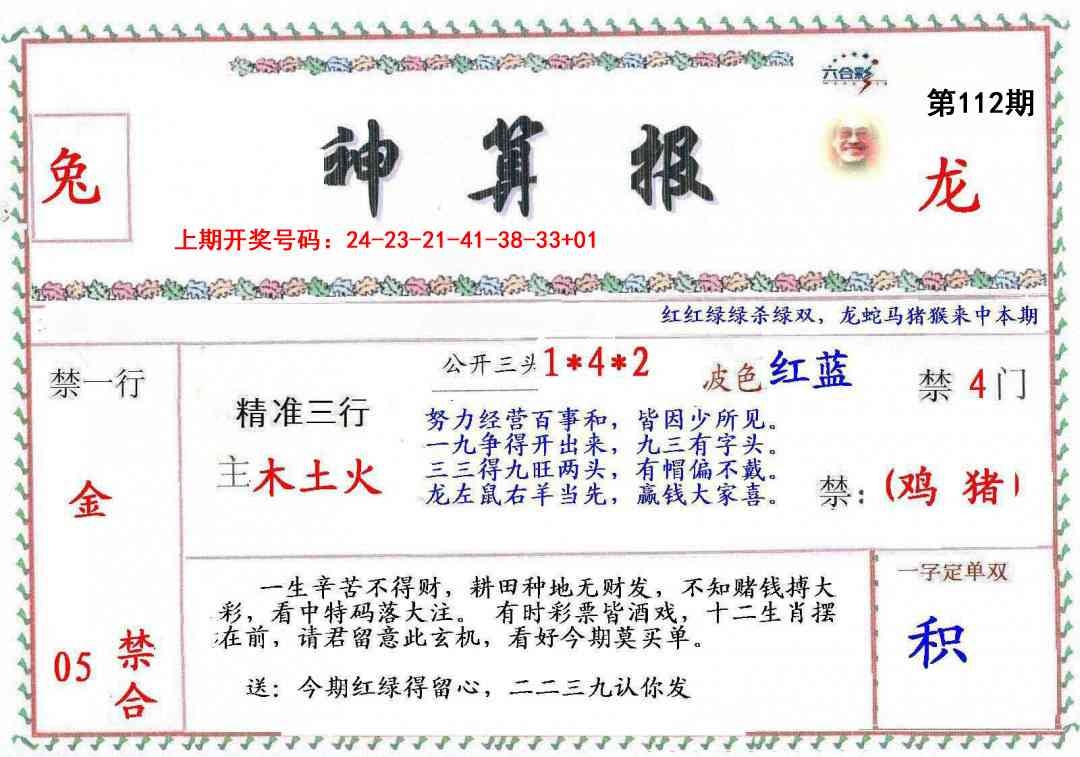 六合彩
第112期
兔
神算报
龙
上期开奖号码：24-23-21-41-38-33+01
红红绿绿杀绿双，龙蛇马猪猴来中本期
禁一行
金
05
禁合
精准三行
主木土火
公开三头1*4*2
波色红蓝
努力经营百事和，皆因少所见。
一九争得开出来，九三有字头。
三三得九旺两头，有帽偏不戴。
龙左鼠右羊当先，赢钱大家喜。
禁4门
禁：(鸡 猪)
一生辛苦不得财，耕田种地无财发，不知赌钱搏大
彩，看中特码落大注。有时彩票皆酒戏，十二生肖摆
在前，请君留意此玄机，看好今期莫买单。
送：今期红绿得留心，二二三九认你发
一字定单双
积